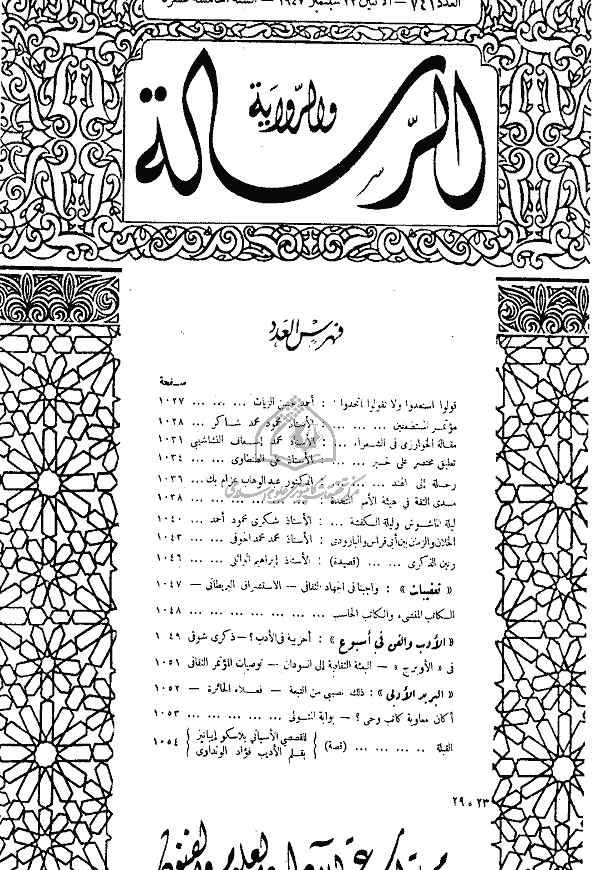 العدد ٧٤١ — الاثنين ٢٢ سبتمبر ١٩٤٧ — السنة الخامسة عشرة
الرسالة
والرواية
فهرس العدد
صفحة
قولوا استعدوا ولا تقولوا اتحدوا : أحمد حسن الزيات ... ... ... ١٠٢٧
مؤتمر المستضعفين ... ... ... : الأستاذ محمود محمد شاكر ... ١٠٢٨
مقالة الخوارزمى فى الشعراء ... : الأستاذ محمد إسعاف النشاشيبى ١٠٣١
تعليق مختصر على خبر ... ... : الأستاذ على الطنطاوى ... ... ١٠٣٤
رحلة إلى الهند ... ... ... : الدكتور عبد الوهاب عزام بك... ١٠٣٦
مدى الثقة فى هيئة الأمم المتحدة ... ... ... ... ١٠٣٨
ليلة الماشوش وليلة الكفشة ... : الأستاذ شكرى محمود أحمد ... ١٠٤٠
الخلان والزمان بين أبى فراس والبارودى : الأستاذ محمد محمد الحوفى ... ١٠٤٣
رنين الذكرى ... ... (قصيدة) : الأستاذ إبراهيم الوائلى ... ... ١٠٤٦
« تعقيبات » : واجبنا فى الجهاد الثقافى — الاستشراق البريطانى — ١٠٤٧
الكاتب المنشىء والكاتب الحاسب ... ... ... ... ... ... ١٠٤٨
« الأدب والفن فى أسبوع » : أحزبية فى الأدب؟ — ذكرى شوقى ١٠٤٩
فى « الأوبرج » — البعثة الثقافية إلى السودان — توصيات المؤتمر الثقافى ١٠٥١
« البريد الأدبى » : ذلك نصيبى من التبعة — فعلاء الحائرة — ١٠٥٢
أكان معاوية كاتب وحى؟ — بوابة المتولى ... ... ... ... ... ١٠٥٣
القبلة ... ... ... ... (قصة) { للقصصى الأسبانى بلاسكو إيبانيز
بقلم الأديب فؤاد الونداوى } ١٠٥٤
٢٣ ٥ ٢٩